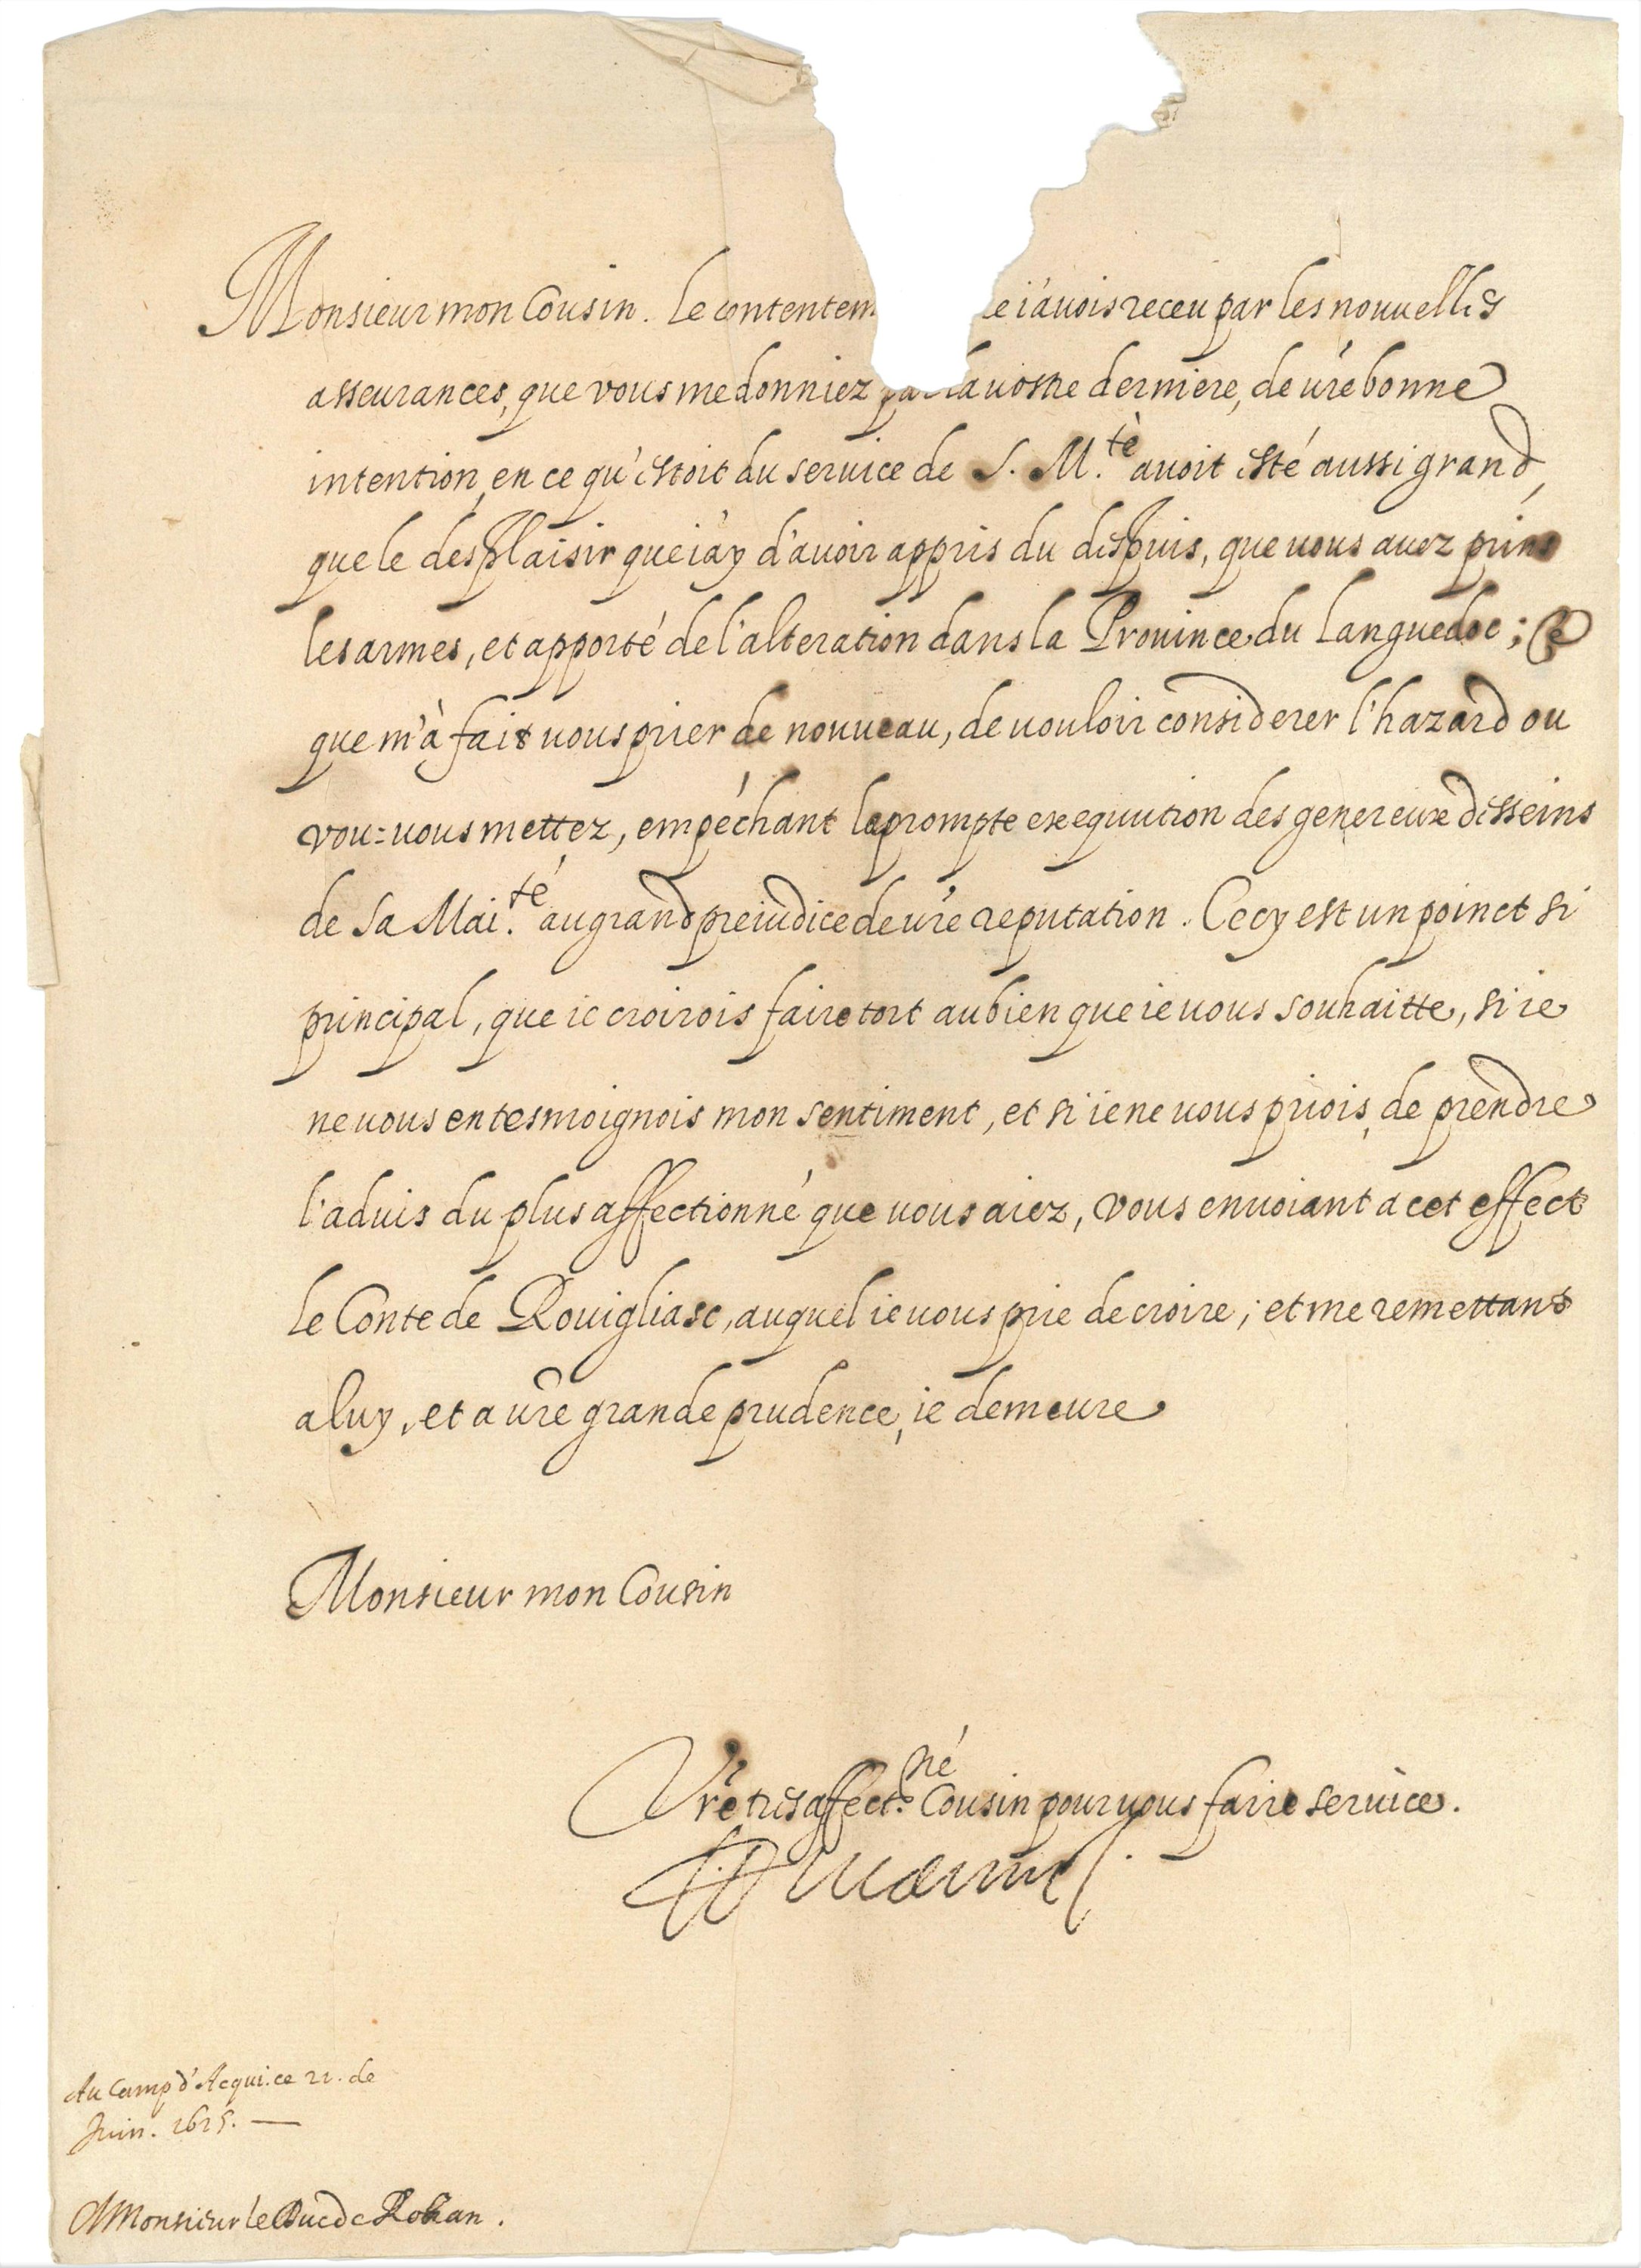 Monsieur mon Cousin. Le contentem e i'auois receu par les nouuelles
asseurances, que vous me donniez par la uostre derniere, de ure bonne
intention, en ce qu'estoit du seruice de S. M.té auoit esté aussi grand,
que le desplaisir que i'ay d'auoir appris du despuis, que uous auez prins
les armes, et apporté de l'alteration dans la Prouince du Languedoc; Ce
que m'à fait uous prier de nouueau, de uouloir considerer l'hazard ou
vou=uous mettez, empéchant la prompte exequution des genereux desseins
de Sa Mai.té au grand preiudice de ure reputation. Cecy est un poinct si
principal, que ie croirois faire tort au bien que ie uous souhaitte, si ie
ne uous en tesmoignois mon sentiment, et si ie ne uous priois, de prendre
l'aduis du plus affectionné que uous aiez, vous enuoiant a cet effect
le Conte de Rouigliasc, auquel ie uous prie de croire; et me remettant
a luy, et a ure grande prudence, ie demeure
Monsieur mon Cousin
Vre tres affect.né Cousin pour uous faire seruice.
Au Camp d'Acqui. ce 21. de
Juin. 1625. —
A Monsieur le Duc de Rohan.